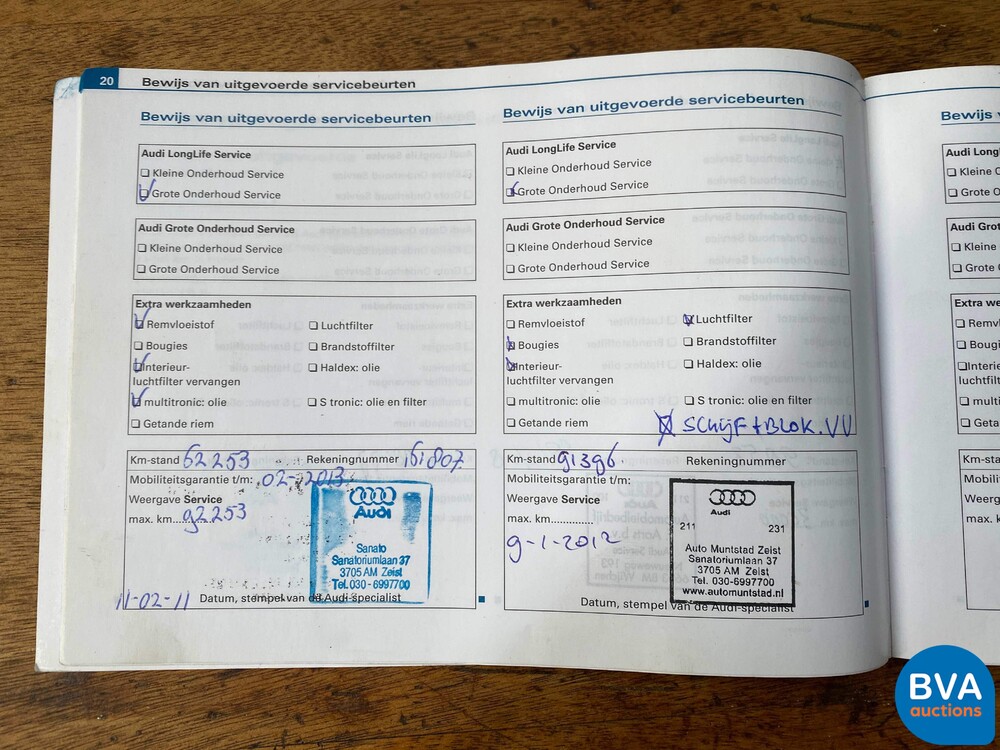 20 Bewijs van uitgevoerde servicebeurten
Bewijs van uitgevoerde servicebeurten
Audi LongLife Service
Kleine Onderhoud Service
Grote Onderhoud Service
Audi Grote Onderhoud Service
Kleine Onderhoud Service
Grote Onderhoud Service
Extra werkzaamheden
Remvloeistof Luchtfilter
Bougies Brandstoffilter
Interieur- Haldex: olie
luchtfilter vervangen
multitronic: olie S tronic: olie en filter
Getande riem
Km-stand 62253 Rekeningnummer 161807
Mobiliteitsgarantie t/m: 02-2013
Weergave Service
max. km...... 92253
Audi
Sanato
Sanatoriumlaan 37
3705 AM Zeist
Tel. 030-6997700
11-02-11 Datum, stempel van de Audi-specialist
Bewijs van uitgevoerde servicebeurten
Audi LongLife Service
Kleine Onderhoud Service
Grote Onderhoud Service
Audi Grote Onderhoud Service
Kleine Onderhoud Service
Grote Onderhoud Service
Extra werkzaamheden
Remvloeistof Luchtfilter
Bougies Brandstoffilter
Interieur- Haldex: olie
luchtfilter vervangen
multitronic: olie S tronic: olie en filter
Getande riem SCHijF + BLOK. VV
Km-stand 91396. Rekeningnummer
Mobiliteitsgarantie t/m:
Weergave Service
max. km..............
9-1-2012
Audi
211 231
Auto Muntstad Zeist
Sanatoriumlaan 37
3705 AM Zeist
Tel. 030-6997700
www.automuntstad.nl
Datum, stempel van de Audi-specialist
Bewijs v
Audi Long
Kleine
Grote
Audi Grot
Kleine
Grote
Extra we
Remvl
Bougi
Interie
luchtfilt
multi
Getan
Km-stan
Mobilite
Weerg
max. k
BVA
auctions